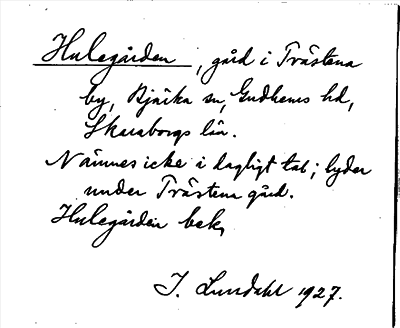 Hulegården, gård i Trästena
by, Bjärka sn, Gudhems hd,
Skaraborgs län.
Nämnes icke i dagligt tal; lyder
under Trästena gård.
Hulegården bek,
I. Lundahl 1927.